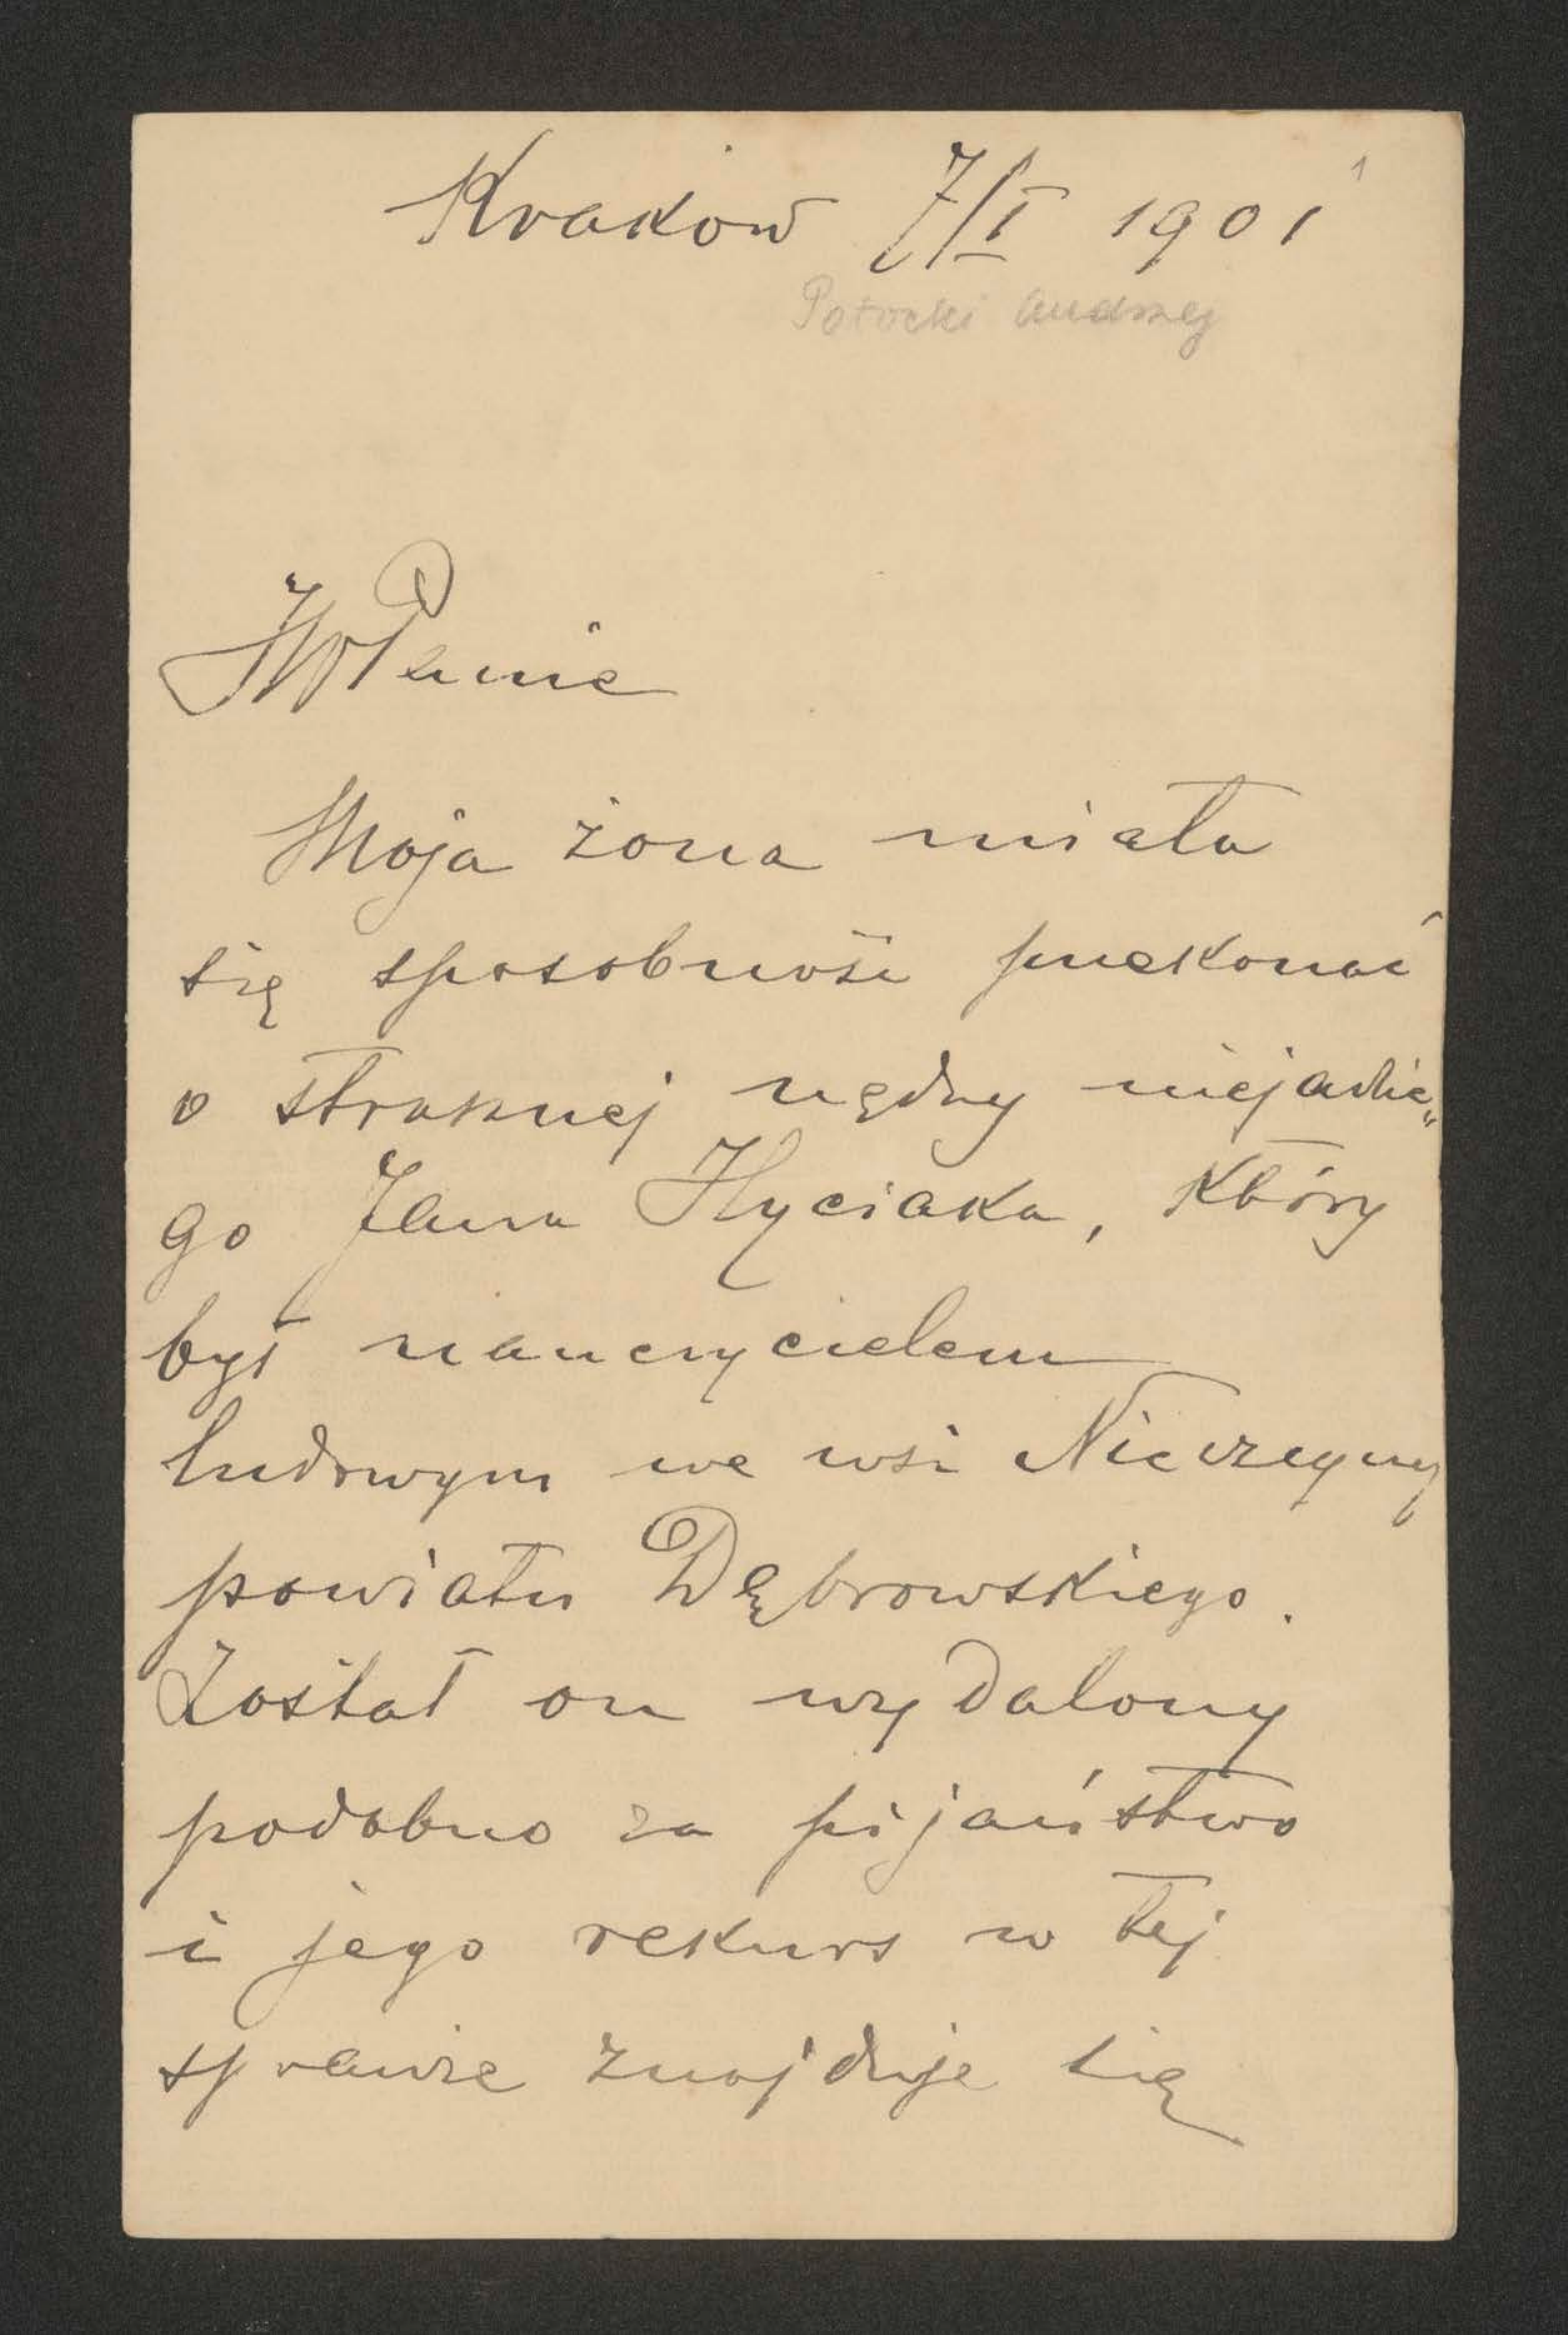 Kraków 7/I 1901
1
Potocki Andrzej
JWPanie
Moja żona miała
się sposobność przekonać
o strasznej nędzy niejakie„
go Jana Hyciaka, który
był nauczycielem
ludowym we wsi Nieczajny
powiatu Dąbrowskiego.
Został on wydalony
podobno za pijaństwo
i jego rekurs w tej
sprawie znajduje się